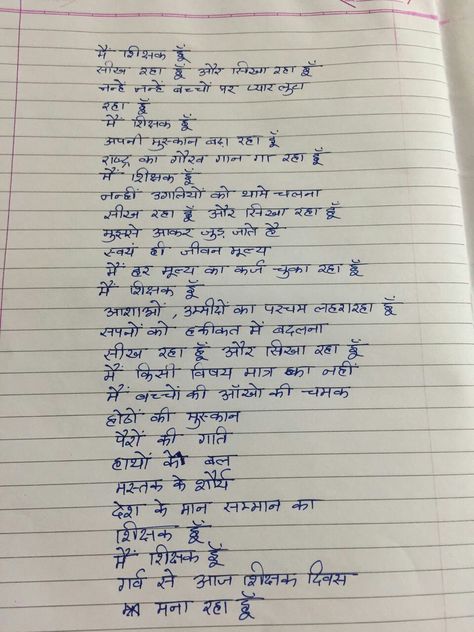 मैं शिक्षक हूँ
सीख रहा हूँ और सिखा रहा हूँ
नन्हें नन्हें बच्चों पर प्यार लुटा
रहा हूँ
मैं शिक्षक हूँ
अपनी मुस्कान बढ़ा रहा हूँ
राष्ट्र का गौरव गान गा रहा हूँ
मैं शिक्षक हूँ
नन्हीं उगलियों को थामे चलना
सीख रहा हूँ और सिखा रहा हूँ
मुझसे आकर जुड़ जाते है
स्वयं ही जीवन मूल्य
मैं हर मूल्य का कर्ज चुका रहा हूँ
मैं शिक्षक हूँ
आशाओं , उम्मीदों का परचम लहरा रहा हूँ
सपनों को हकीकत में बदलना
सीख रहा हूँ और सिखा रहा हूँ
मैं किसी विषय मात्र का नहीं
मैं बच्चों की आँखो की चमक
होठों की मुस्कान
पैरों की गति
हाथों के बल
मस्तक के शौर्य
देश के मान सम्मान का
शिक्षक हूँ
मैं शिक्षक हूँ
गर्व से आज शिक्षक दिवस
मना रहा हूँ